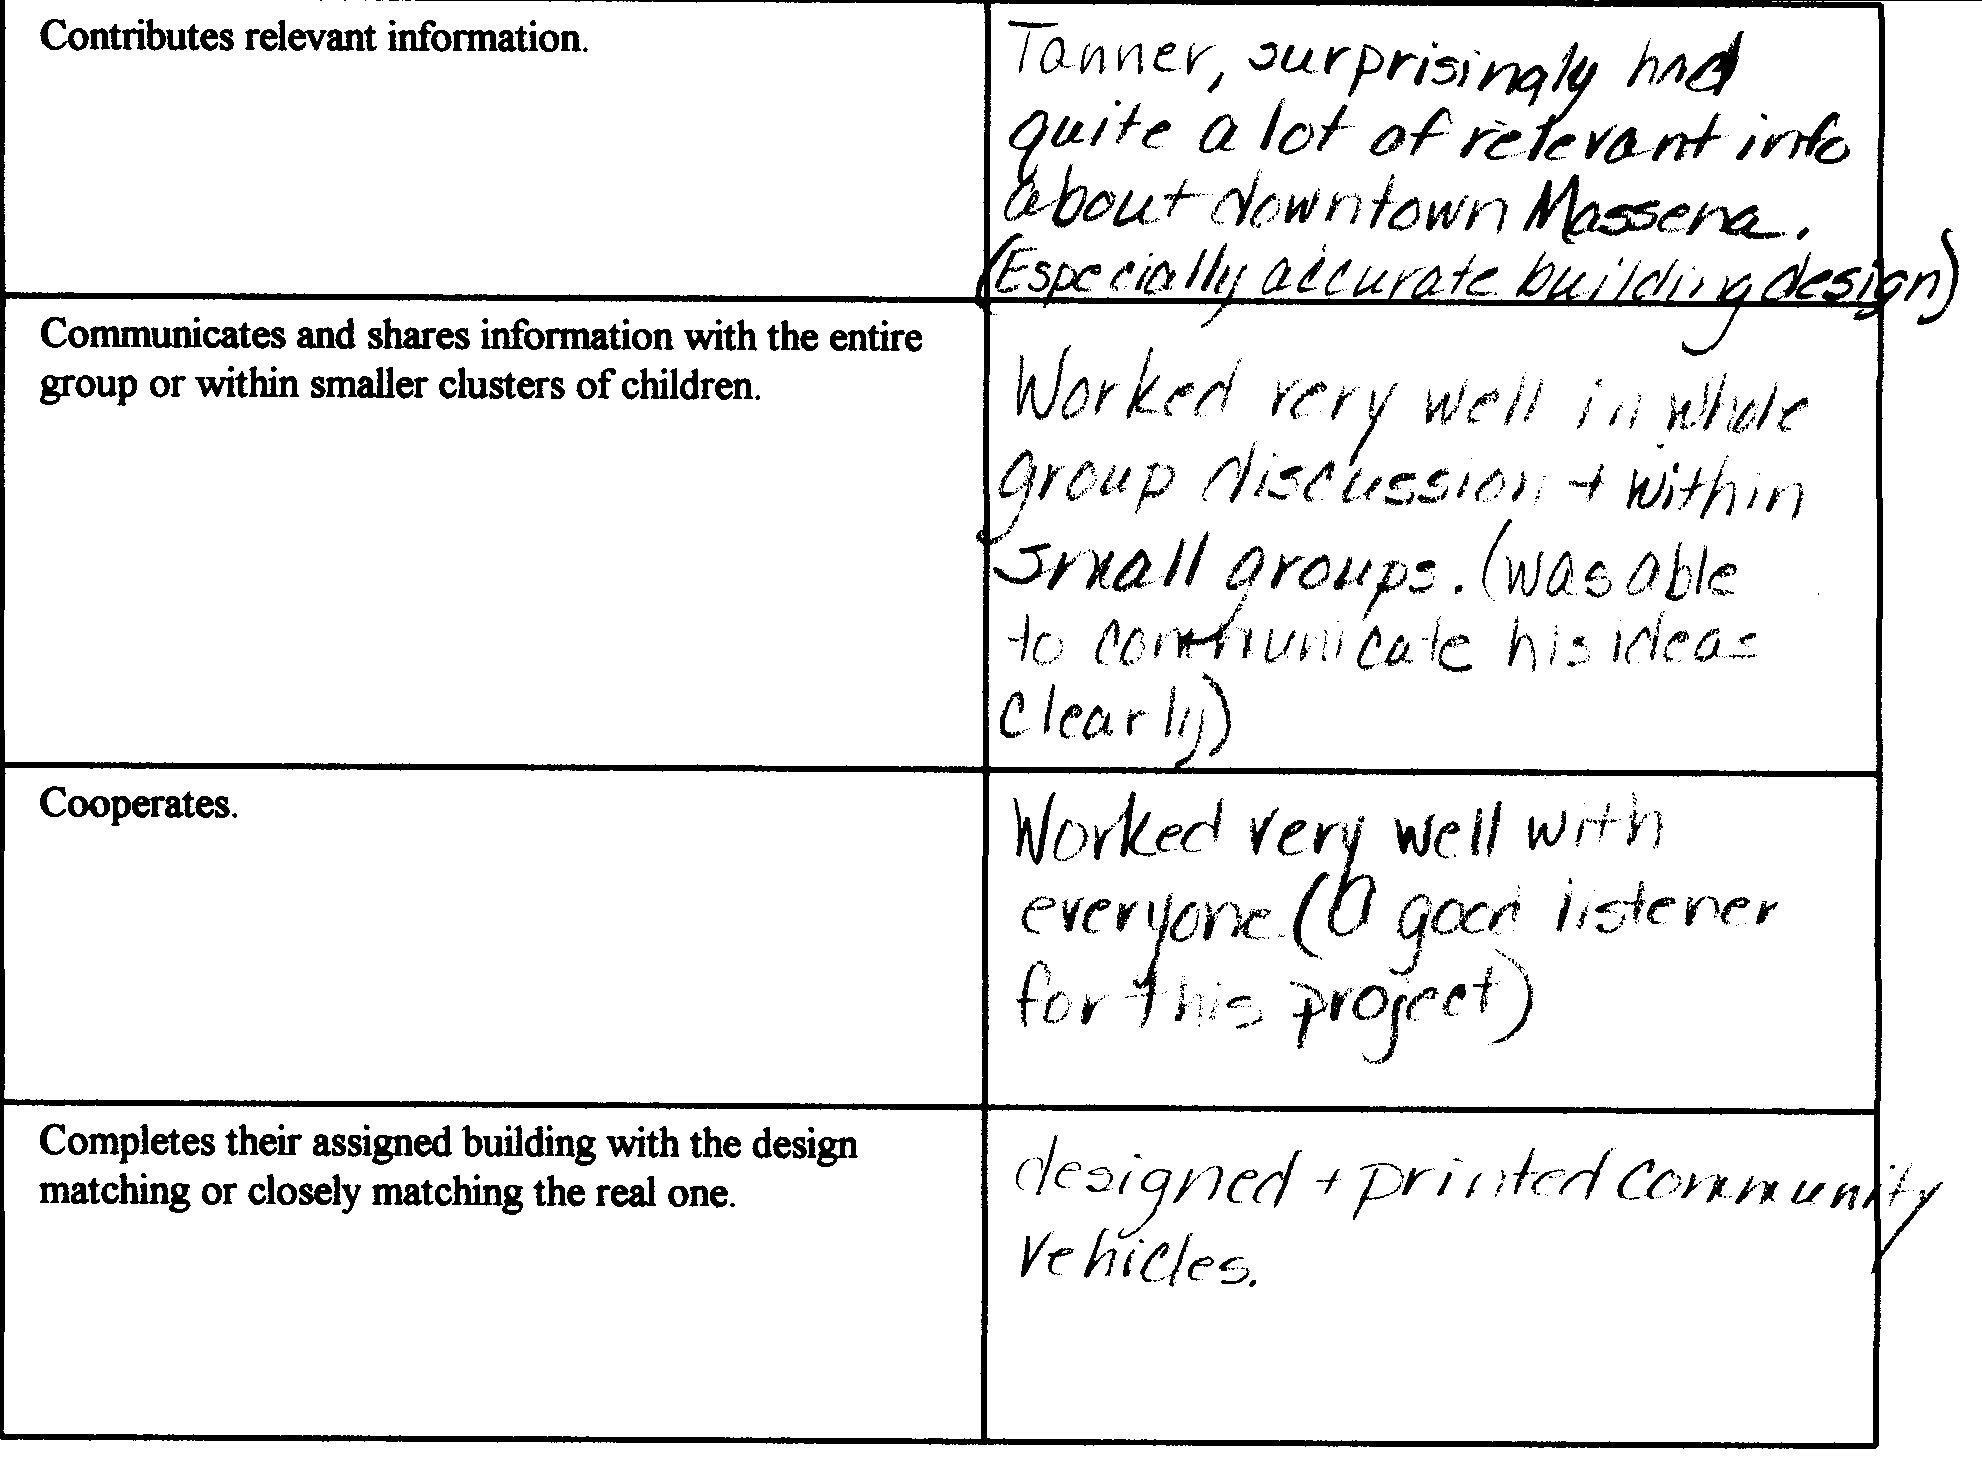 Contributes relevant information.
Tanner, surprisingly had
quite a lot of relevant info
about downtown Massena.
(Especially accurate building design)
Communicates and shares information with the entire
group or within smaller clusters of children.
Worked very well in whole
group discussion + within
small groups. (was able
to communicate his ideas
clearly)
Cooperates.
Worked very well with
everyone (A good listener
for this project)
Completes their assigned building with the design
matching or closely matching the real one.
designed + printed community
vehicles.